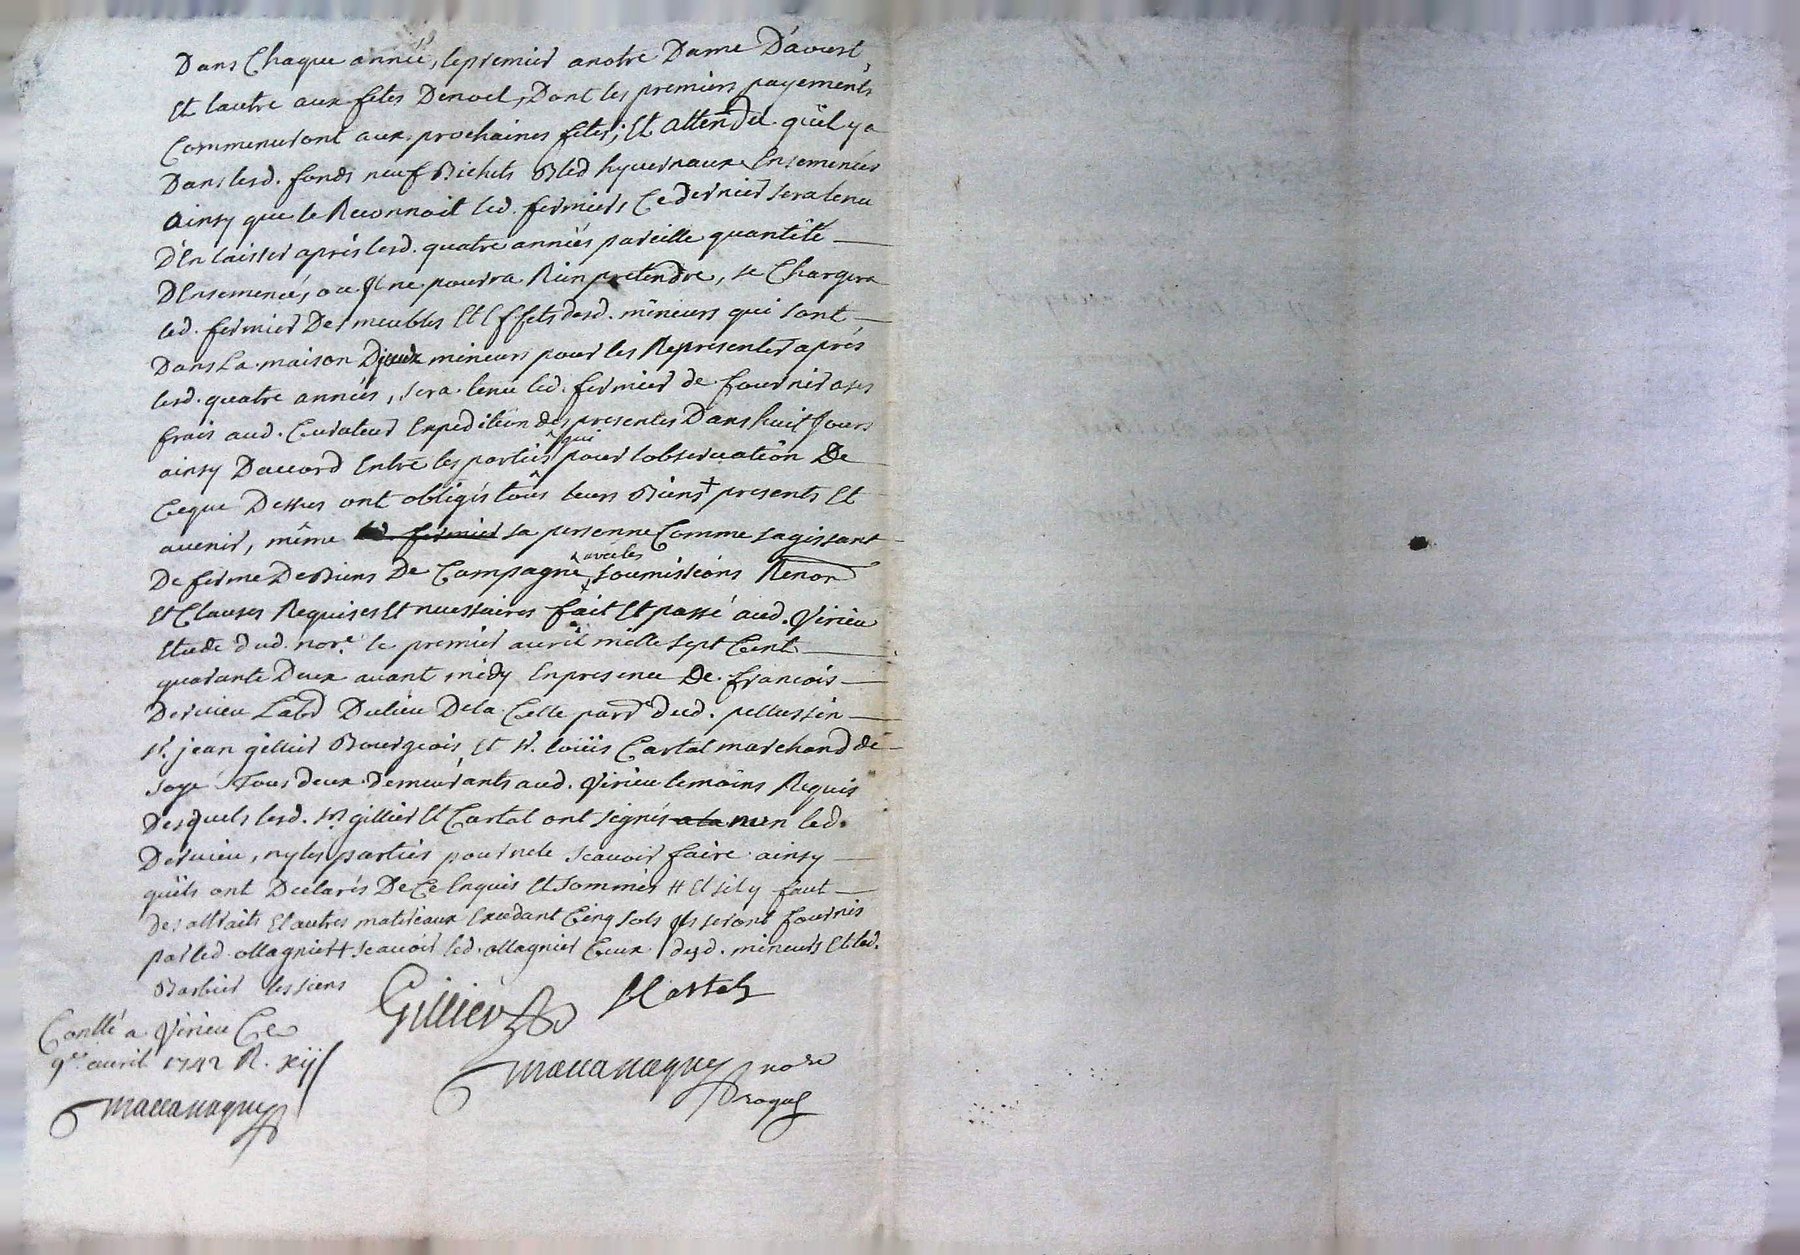 Dans Chaque année, le premier a notre Dame D'aoust,
Et lautre aux fetes Denoel, Dont les premiers payements
Commenceront aux prochaines fetes; Et attendu qu'il y a
Dans lesd. fonds neuf Bichets Bled hyvernaux Ensemencés
ainsy que le Reconnoit led. fermier, Ce dernier sera tenu
D'En laisser aprés lesd. quatre années pareille quantité
D'Ensemencé, ou Il ne pourra Rien pretendre, se Chargera
led. fermier Des meubles Et Effets desd. mineurs qui sont
Dans La maison mineurs pour les Representer aprés
lesd. quatre années, sera tenu led. fermier de fournir a ses
frais aud. Curateur Expedition des presentes Dans huit Jours
ainsy Daccord Entre les parties qui pour lobservation De
Ceque Dessus ont obligés tous leurs Biens + presents Et
avenir, même led. fermier sa personne Comme sagissant
De ferme De Biens De Campagne avec les soumissions Renon
Et Clauses Requises Et necessaires fait Et passé aud. Virieu
Etude dud. nore. le premier avril mille sept Cent
quarante Deux avant midy En presence De francois
Dervieu Labr Dulieu Dela Celle parr. dud. pellussin
sr. jean gillier Bourgeois, Et sr. loüis Cartal marchand de
soye Tous deux Demeurants aud. Virieu temoins Requis
Desquels lesd. srs gillier Et Cartal ont signés non led.
Dervieu, ny les parties pour ne le scavoir faire ainsy
quils ont Declarés De Ce Enquis Et sommés # Et sil y faut
Des attraits Et autres materiaux Excedant Cinq sols Ils seront fournis
par led. ollagnier + scavoir led. ollagnier Ceux desd. mineurs Et led.
Barbier les siens
Gillier Cartal
Conllé a Virieu Ce
9e. avril 1742 R. xij s